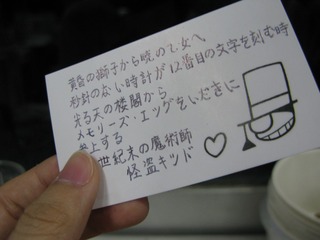 黄昏の獅子から暁の乙女へ
秒針のない時計が12番目の文字を刻む時
光る天の楼閣から
メモリーズ・エッグをいただきに
参上する
世紀末の魔術師
怪盗キッド